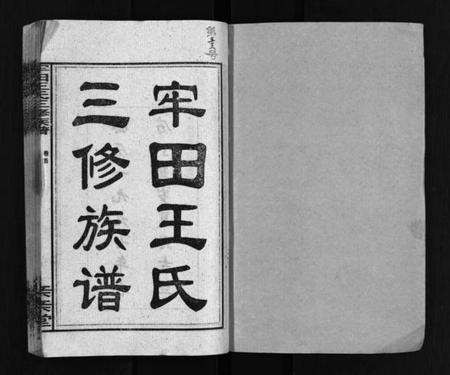 第十三号
牢田王氏
三修族谱
卷首